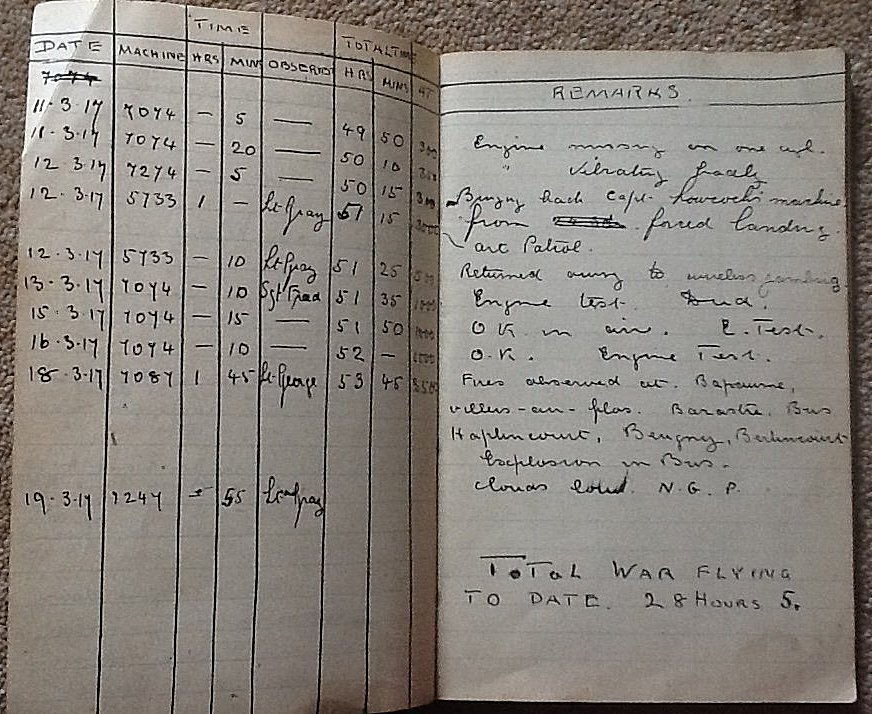 TIME
TOTAL TIME
DATE MACHINE HRS MINS OBSERVER HRS MINS AT
REMARKS.
7074
11.3.17 7074 — 5 — 49 50 300 Engine missing on one cyl.
11.3.17 7074 — 20 — 50 10 " Vibrating
12.3.17 7274 — 5 — 50 15 Bringing back Capt. machine
12.3.17 5733 1 — Lt Gray 51 15 3000 from forced landing.
Art Patrol.
12.3.17 5733 — 10 Lt Gray 51 25 500 Returned owing to wireless jambing
13.3.17 7074 — 10 Sgt 51 35 1000 Engine test. Dud.
15.3.17 7074 — 15 — 51 50 1000 OK in air. E. Test.
16.3.17 7074 — 10 — 52 — O.K. Engine Test.
18.3.17 7087 1 45 Lt George 53 45 Fires observed at. Bapaume,
Villers-au-flos. Barastre, Bus
Haplincourt, Beugny, Bertincourt
Explosion in Bus.
19.3.17 7247 — 55 Lt Gray Clouds N.G.P.
TOTAL WAR FLYING
TO DATE. 28 HOURS 5.